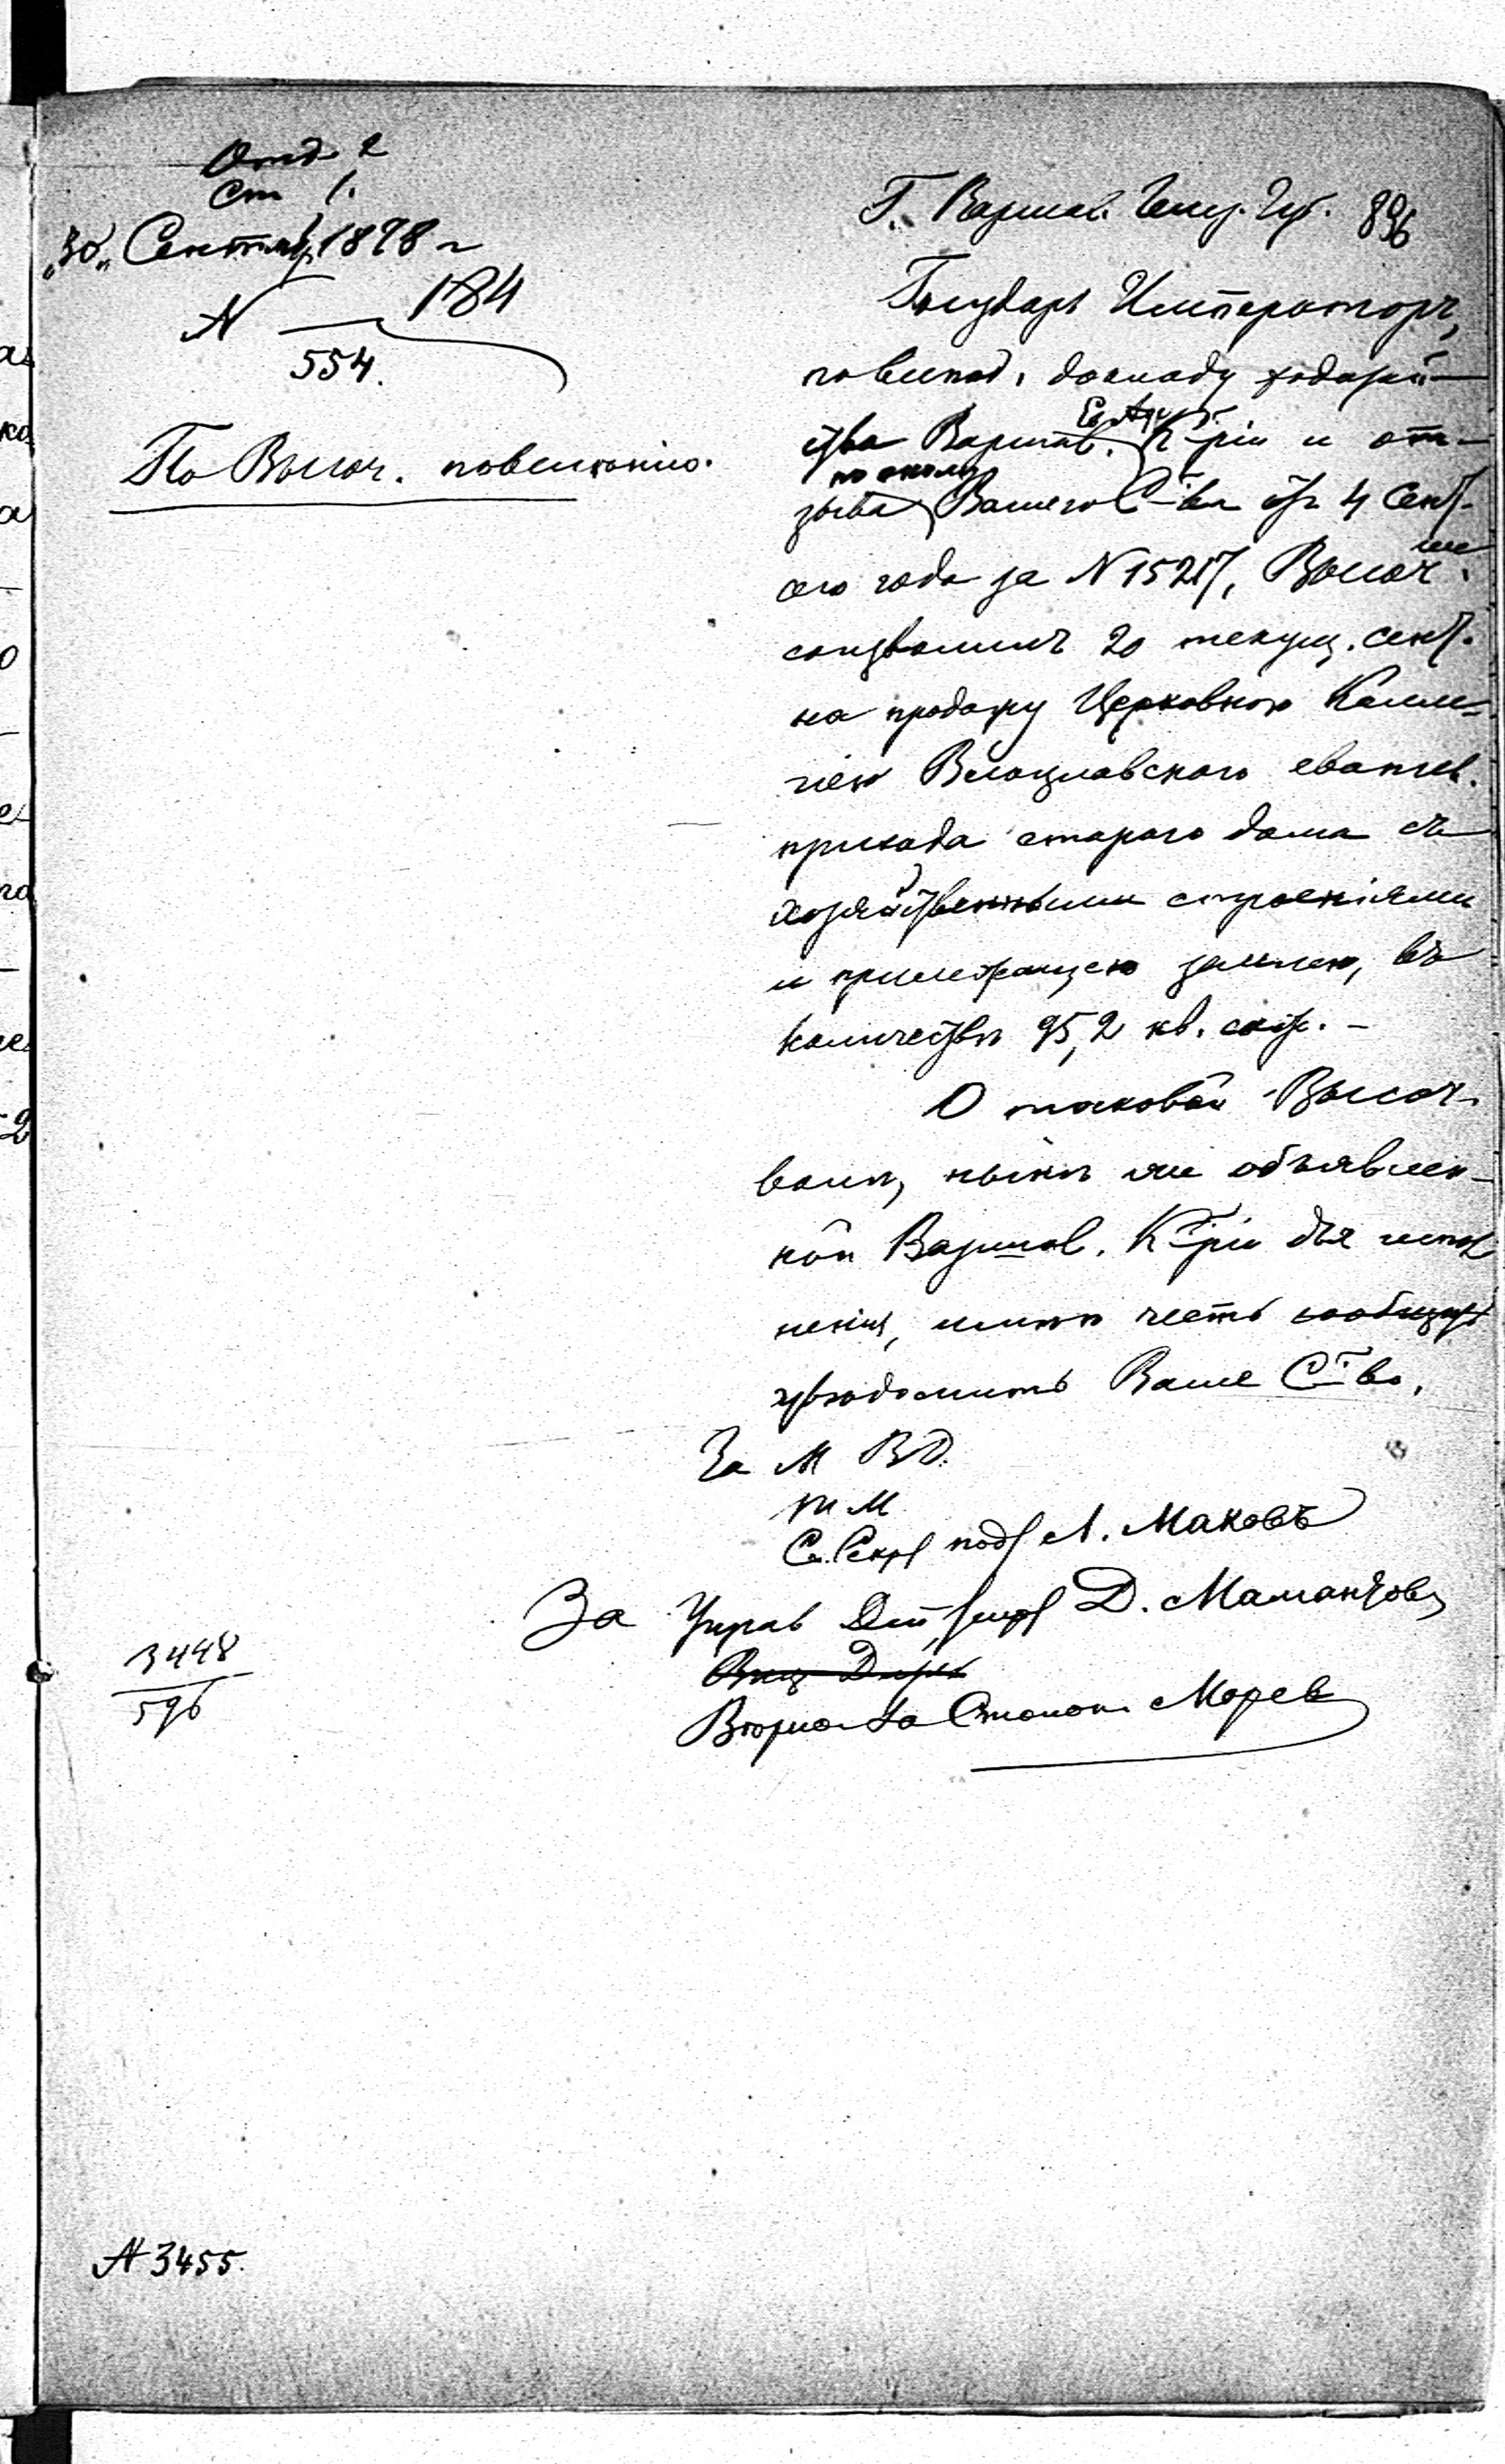 Отд. 2
Ст 1.
„30„ Сентяб. 1878 г
N 184
554.
По Высоч. повелѣнію.
Г. Варшав. Генер. Губ. 896
Государь Императоръ,
по всепод. докладу ходатай-
ства Варшав. Ев. Ауг. К-ріи и от-
зыва по оному Вашего С-ва отъ 4 Сент.
сего года за N 15217, Высоч.ше
соизволилъ 20 текущ. сент.
на продажу Церковною Колле-
гіею Влоцлавского евангел.
прихода стараго дома съ
хозяйственными строеніями
и прилежащею землею, въ
количествѣ 95,2 кв. саж. –
О таковой Высоч.
волѣ, нынѣ же объявлен-
ной Варшав. К-ріи для испол
ненія, имѣю честь сообщить
увѣдомить Ваше С-во.
За М В Д.
т М
Ст. Секр подп Л. Маковъ
За Управ Деп, скр Д. Мамантовъ
Вице Дирек
Вѣрно: За Столон. Морев
3448
596
N 3455.